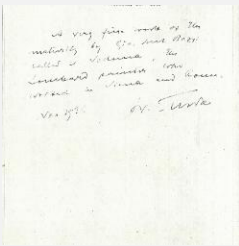 A very fine work of the
maturity by Gio. Ant. Bazzi
called il Sodoma, the
Lombard painter who
worked in Siena and Rome.